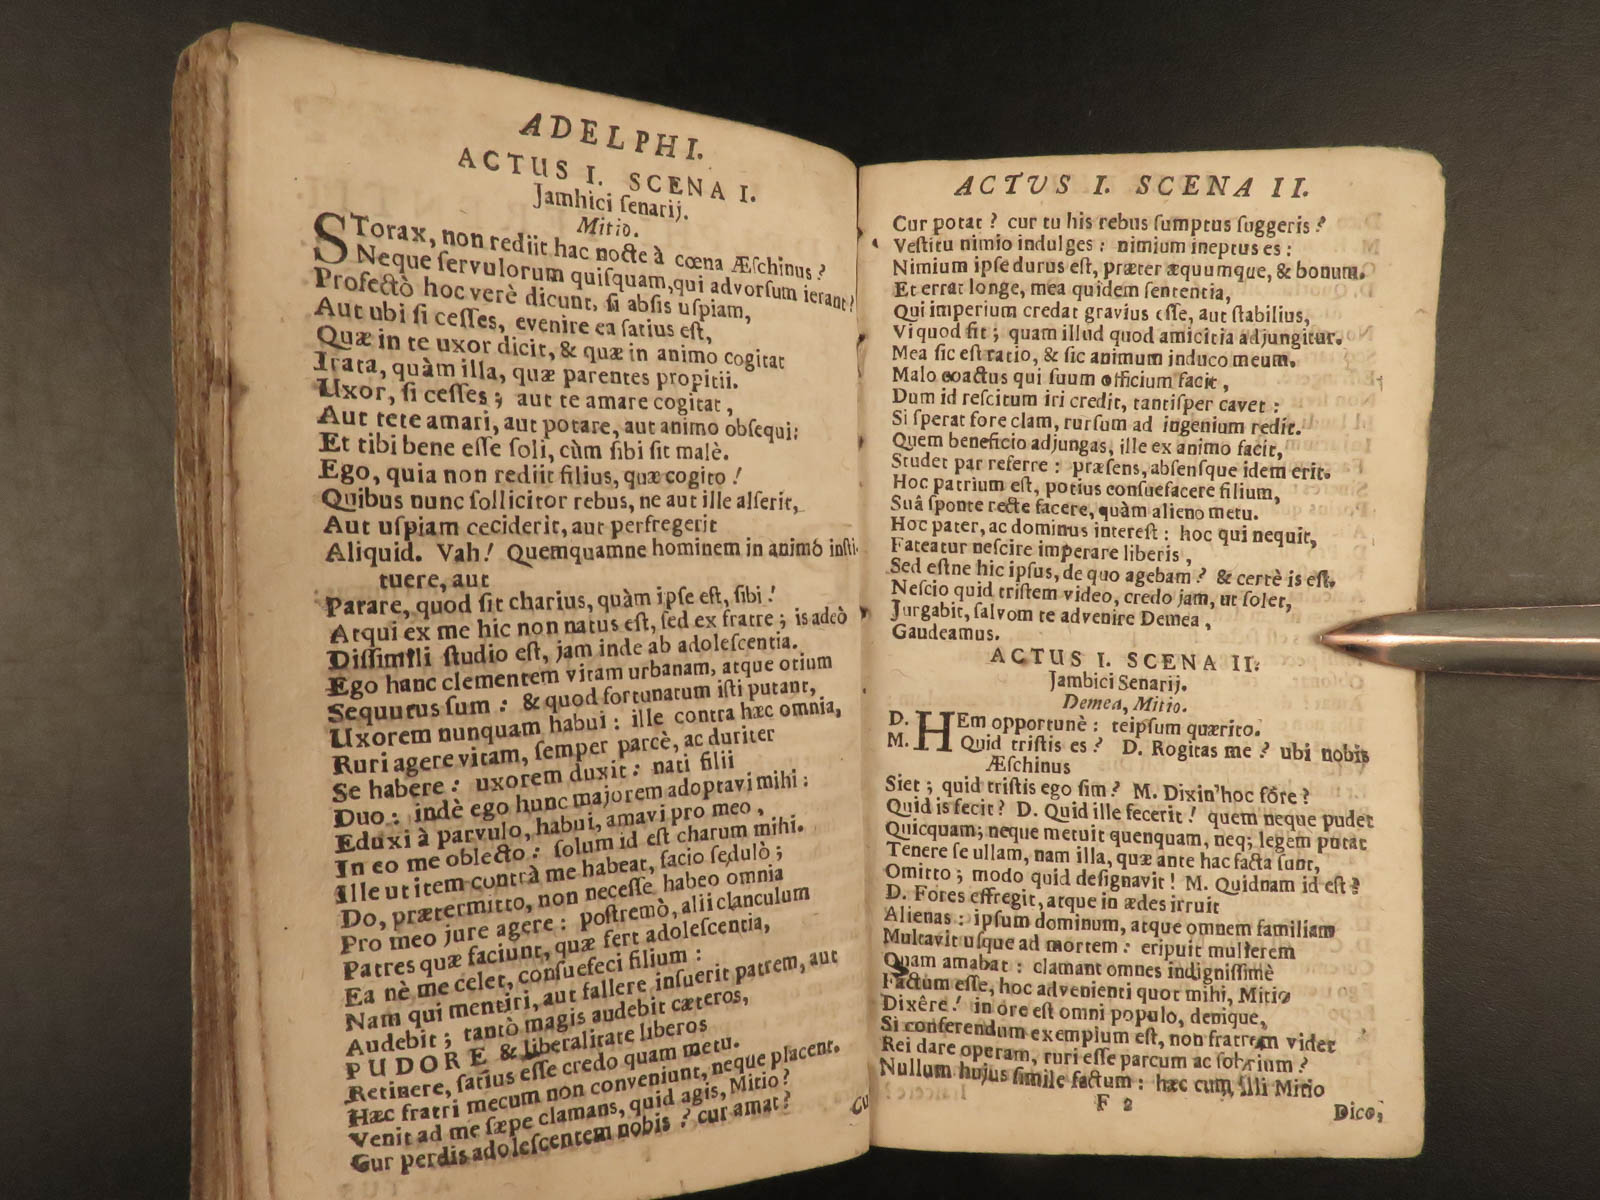 ADELPHI.
ACTUS I. SCENA I.
Jamhici ſenarij.
Mitio.
STorax, non rediit hac nocte à cœna Æſchinus?
Neque ſervulorum quiſquam, qui advorſum ierant?
Profectò hoc verè dicunt, ſi abſis uſpiam,
Aut ubi ſi ceſſes, evenire ea ſatius eſt,
Quæ in te uxor dicit, & quæ in animo cogitat
Irata, quàm illa, quæ parentes propitii.
Uxor, ſi ceſſes; aut te amare cogitat,
Aut tete amari, aut potare, aut animo obſequi:
Et tibi bene eſſe ſoli, cùm ſibi ſit malè.
Ego, quia non rediit filius, quæ cogito!
Quibus nunc ſollicitor rebus, ne aut ille alſerit,
Aut uſpiam ceciderit, aut perfregerit
Aliquid. Vah! Quemquamne hominem in animo inſti-
tuere, aut
Parare, quod ſit charius, quàm ipſe eſt, ſibi!
Atqui ex me hic non natus eſt, ſed ex fratre; is adeò
Diſſimili ſtudio eſt, jam inde ab adoleſcentia.
Ego hanc clementem vitam urbanam, atque otium
Sequutus ſum: & quod fortunatum iſti putant,
Uxorem nunquam habui: ille contra hæc omnia,
Ruri agere vitam, ſemper parcè, ac duriter
Se habere: uxorem duxit: nati filii
Duo: indè ego hunc majorem adoptavi mihi:
Eduxi à parvulo, habui, amavi pro meo,
In eo me oblecto: ſolum id eſt charum mihi.
Ille ut item contrà me habeat, facio ſedulò;
Do, prætermitto, non neceſſe habeo omnia
Pro meo jure agere: poſtremò, alii clanculum
Patres quæ faciunt, quæ fert adoleſcentia,
Ea nè me celet, conſuefeci filium:
Nam qui mentiri, aut fallere inſuerit patrem, aut
Audebit; tantò magis audebit cæteros,
PUDORE & liberalitate liberos
Retinere, ſatius eſſe credo quam metu.
Hæc fratri mecum non conveniunt, neque placent.
Venit ad me ſæpe clamans, quid agis, Mitio?
Cur perdis adoleſcentem nobis? cur amat?
Cu
ACTVS I. SCENA II.
Cur potat? cur tu his rebus ſumptus ſuggeris?
Veſtitu nimio indulges: nimium ineptus es:
Nimium ipſe durus eſt, præter æquumque, & bonum.
Et errat longe, mea quidem ſententia,
Qui imperium credat gravius eſſe, aut ſtabilius,
Vi quod fit; quam illud quod amicitia adjungitur.
Mea ſic eſt ratio, & ſic animum induco meum.
Malo coactus qui ſuum officium facit,
Dum id reſcitum iri credit, tantiſper cavet:
Si ſperat fore clam, rurſum ad ingenium redit.
Quem beneficio adjungas, ille ex animo facit,
Studet par referre: præſens, abſenſque idem erit.
Hoc patrium eſt, potius conſuefacere filium,
Suâ ſponte recte facere, quàm alieno metu.
Hoc pater, ac dominus intereſt: hoc qui nequit,
Fateatur neſcire imperare liberis,
Sed eſtne hic ipſus, de quo agebam? & certè is eſt.
Neſcio quid triſtem video, credo jam, ut ſolet,
Jurgabit, ſalvom te advenire Demea,
Gaudeamus.
ACTUS I. SCENA II.
Jambici Senarij.
Demea, Mitio.
D. HEm opportunè: teipſum quærito.
M. Quid triſtis es? D. Rogitas me? ubi nobis
Æſchinus
Siet; quid triſtis ego ſim? M. Dixin'hoc fore?
Quid is fecit? D. Quid ille fecerit! quem neque pudet
Quicquam; neque metuit quenquam, neq; legem putat
Tenere ſe ullam, nam illa, quæ ante hac facta ſunt,
Omitto; modo quid deſignavit! M. Quidnam id eſt?
D. Fores effregit, atque in ædes irruit
Alienas: ipſum dominum, atque omnem familiam
Multavit uſque ad mortem: eripuit mulierem
Quam amabat: clamant omnes indigniſſimè
Factum eſſe, hoc advenienti quot mihi, Mitio
Dixêre! in ore eſt omni populo, denique,
Si conferendum exemplum eſt, non fratrem videt
Rei dare operam, ruri eſſe parcum ac ſobrium?
Nullum hujus ſimile factum: hæc cum illi Mitio
F 2
Dico,